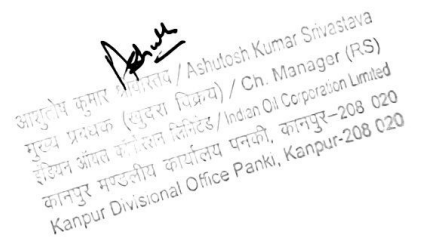 आशुतोष कुमार श्रीवास्तव / Ashutosh Kumar Srivastava
मुख्य प्रबंधक (खुदरा विक्रय) / Ch. Manager (RS)
इंडियन ऑयल कॉर्पोरेशन लिमिटेड / Indian Oil Corporation Limited
कानपुर मण्डलीय कार्यालय पनकी, कानपुर–208 020
Kanpur Divisional Office Panki, Kanpur-208 020